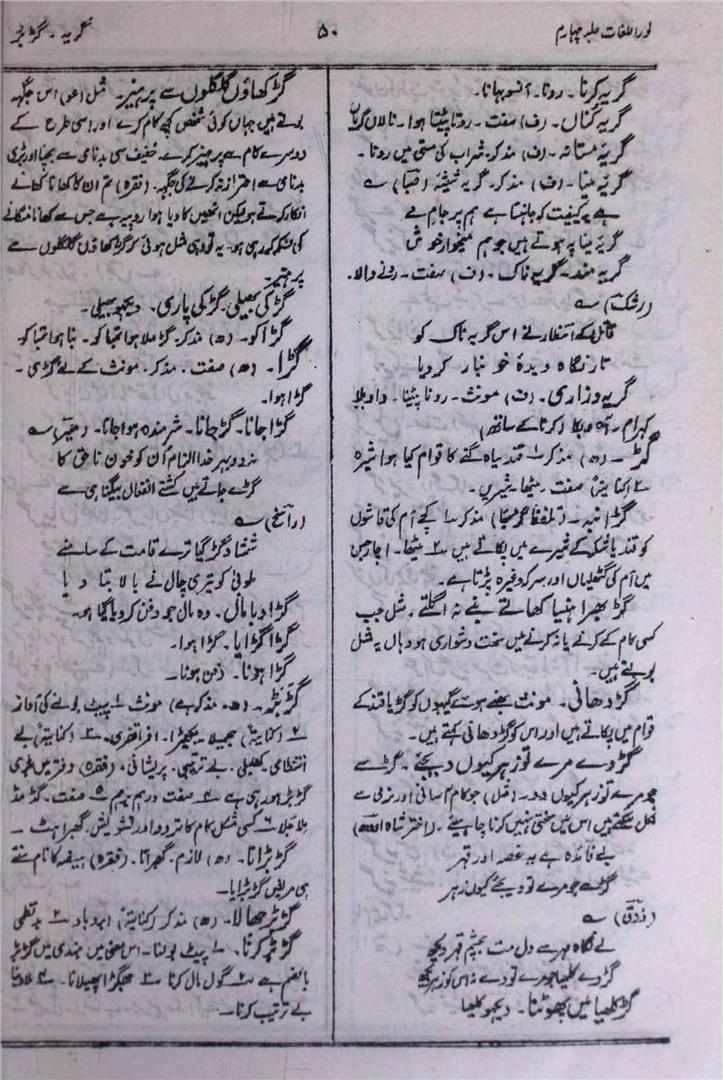 نور اللغات جلد چہارم
۵۰
گریہ - گڑبڑ
گریہ کرنا۔ رونا۔ آنسو بہانا۔
گریہ کناں۔ (ف) صفت۔ روتا پیٹتا ہوا۔ نالاں گریاں
گریہ مستانہ۔ (ف) مذکر۔ شراب کی مستی میں رونا۔
گریہ مینا۔ (ف) مذکر۔ گریہ شیشہ (صبا) ؎
ہے پر کیفیت کہ جانتا ہے ہم پر جام مے
گریہ مینا پہ ہوتے ہیں جو ہم میخوار خوش
گریہ مند۔ گریہ ناک۔ (ف) صفت۔ رونے والا۔
(رشک) ؎
قاتل کے انتظار نے اس گریہ ناک کو
تار نگاہ دیدۂ خونبار کر دیا
گریہ وزاری۔ (ف) مونث۔ رونا پیٹنا۔ واویلا
کہرام۔ آہ و بکا (کرنا کے ساتھ)
گڑ۔ (ھ) مذکر ۱ قند سیاہ گنے کا قوام کیا ہوا شیرہ
۲ کنایۃً صفت۔ میٹھا۔ شیریں۔
گڑانبہ۔ (تلفظ گڑمبا) مذکر ۱ کچے آم کی قاشوں
کو قند یا شکر کے شیرے میں پکاتے ہیں ۲ میٹھا۔ اچار جس
میں آم کی گٹھلیاں اور سرکہ وغیرہ پڑتا ہے۔
گڑ بھرا ہنسیا کھاتے بنے نہ اگلتے۔ مثل جب
کسی کام کے کرنے یا نہ کرنے میں سخت دشواری ہو وہاں یہ مثل
بولتے ہیں۔
گڑ دھانی۔ مونث بھنے ہوئے گیہوں کو گڑ یا قند کے
قوام میں پکاتے ہیں اور اس کو گڑ دھانی کہتے ہیں۔
گڑ دے مرے تو زہر کیوں دیجئے۔ گڑ سے
جو مرے تو زہر کیوں دو۔ (مثل) جو کام آسانی اور نرمی سے
نکل سکتے ہیں اس میں سختی نہیں کرنا چاہیئے۔ (اختر شاہ اودھ)
بے فائدہ ہے یہ غصہ اور قہر
گڑ سے جو مرے تو دیجئے کیوں زہر
(ذوق) ؎
بے نگاہ مہر سے دل مت بچشم قہر دیکھ
گڑ دے کلھیا جو مرے تو دے نہ اس کو زہر دیکھ
گڑ کلھیا میں پھوٹنا۔ دیکھو کلھیا
گڑ کھاؤں گلگلوں سے پرہیز۔ مثل (عو) اس جگہ
بولتے ہیں جہاں کوئی شخص کچھ کام کرے اور اسی طرح کے
دوسرے کام سے پرہیز کرے۔ خفیف سی بدنامی سے بچنا اور بڑی
بدنامی سے احتراز نہ کرنے کی جگہ۔ (فقرہ) تم ان کا کھانا کھانے
انکار کرتے ہو لیکن انہیں کا دیا ہوا روپیہ ہے جس سے کھانا منگانے
کی فکر کر رہی ہو۔ یہ تو وہی مثل ہوئی کہ گڑ کھاؤں گلگلوں سے
پرہیز۔
گڑ کی بھیلی۔ گڑ کی پاری۔ دیکھو بھیلی۔
گڑاکو۔ (ھ) مذکر۔ گڑ ملا ہوا تمباکو۔ بنا ہوا تمباکو
گڑا۔ (ھ) صفت۔ مذکر۔ مونث کے لیے گڑی۔
گڑا ہوا۔
گڑا جانا۔ گڑ جانا۔ شرمندہ ہوا جانا۔ ؎
نہ دو بہر خدا الزام ان کو خون ناحق کا
گڑے جاتے ہیں کشتے انفعال بیگناہی سے
(راسخ) ؎
شمشاد گڑ گیا ترے قامت کے سامنے
طوبیٰ کو تیری چال نے بالا بتا دیا
گڑا دبا مال۔ وہ مال جو دفن کر دیا گیا ہو۔
گڑا گڑایا۔ گڑا ہوا۔
گڑا ہونا۔ دفن ہونا۔
گڑبڑ۔ (ھ۔ مذکر ہے) مونث ۱ پیٹ بولنے کی آواز
۲ (کنایۃً) جھمیلا۔ بکھیڑا۔ افراتفری۔ ۳ (کنایۃً) بے
انتظامی۔ کھلبلی۔ بے ترتیبی۔ پریشانی۔ (فقرہ) دفتر میں بڑی
گڑبڑ ہو رہی ہے ۴ صفت درہم برہم ۵ صفت۔ گڈ مڈ
ملا جلا ۶ کسی مشکل کام کا تردد اور تشویش۔ گھبراہٹ۔
گڑبڑانا۔ (ھ) لازم۔ گھبرانا۔ (فقرہ) ہیضہ کا نام سنتے
ہی مریض گڑبڑایا۔
گڑبڑجھالا۔ (ھ) مذکر (کنایۃً) ابر و باد ۲ بدنظمی
گڑبڑ کرنا۔ ۱ پیٹ بولنا۔ اس معنی میں ہندی میں گڑبڑ
بالضم ہے ۲ گول مال کرنا ۳ جھگڑا پھیلانا۔ ۴ ملا دینا
بے ترتیب کرنا۔